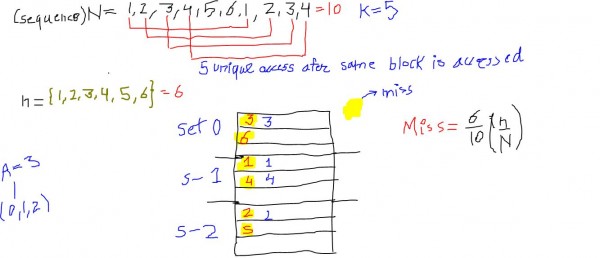 (sequence) N = 1,2,3,4,5,6,1,2,3,4 = 10 K=5
5 unique access after same block is accessed
n = {1,2,3,4,5,6} = 6
→ miss
set 0 3 3
6
Miss = 6/10 (n/N)
s-1 1 1
4 4
A=3
(0,1,2)
s-2 2 2
5